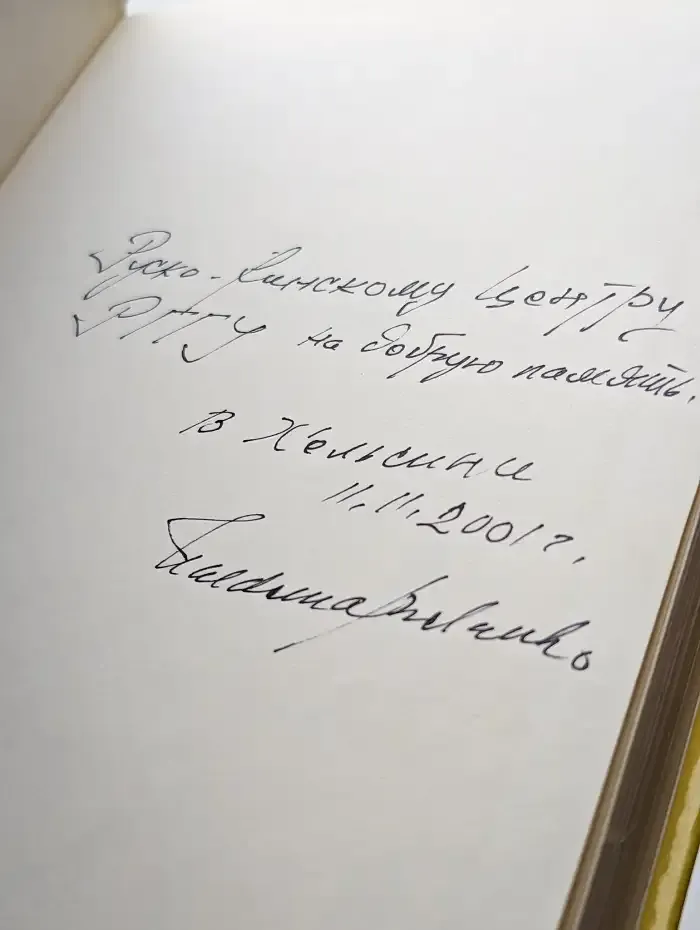 Руско-Финскому Центру
РГГУ на добрую память.
В Хельсинки
11.11.2001 г.